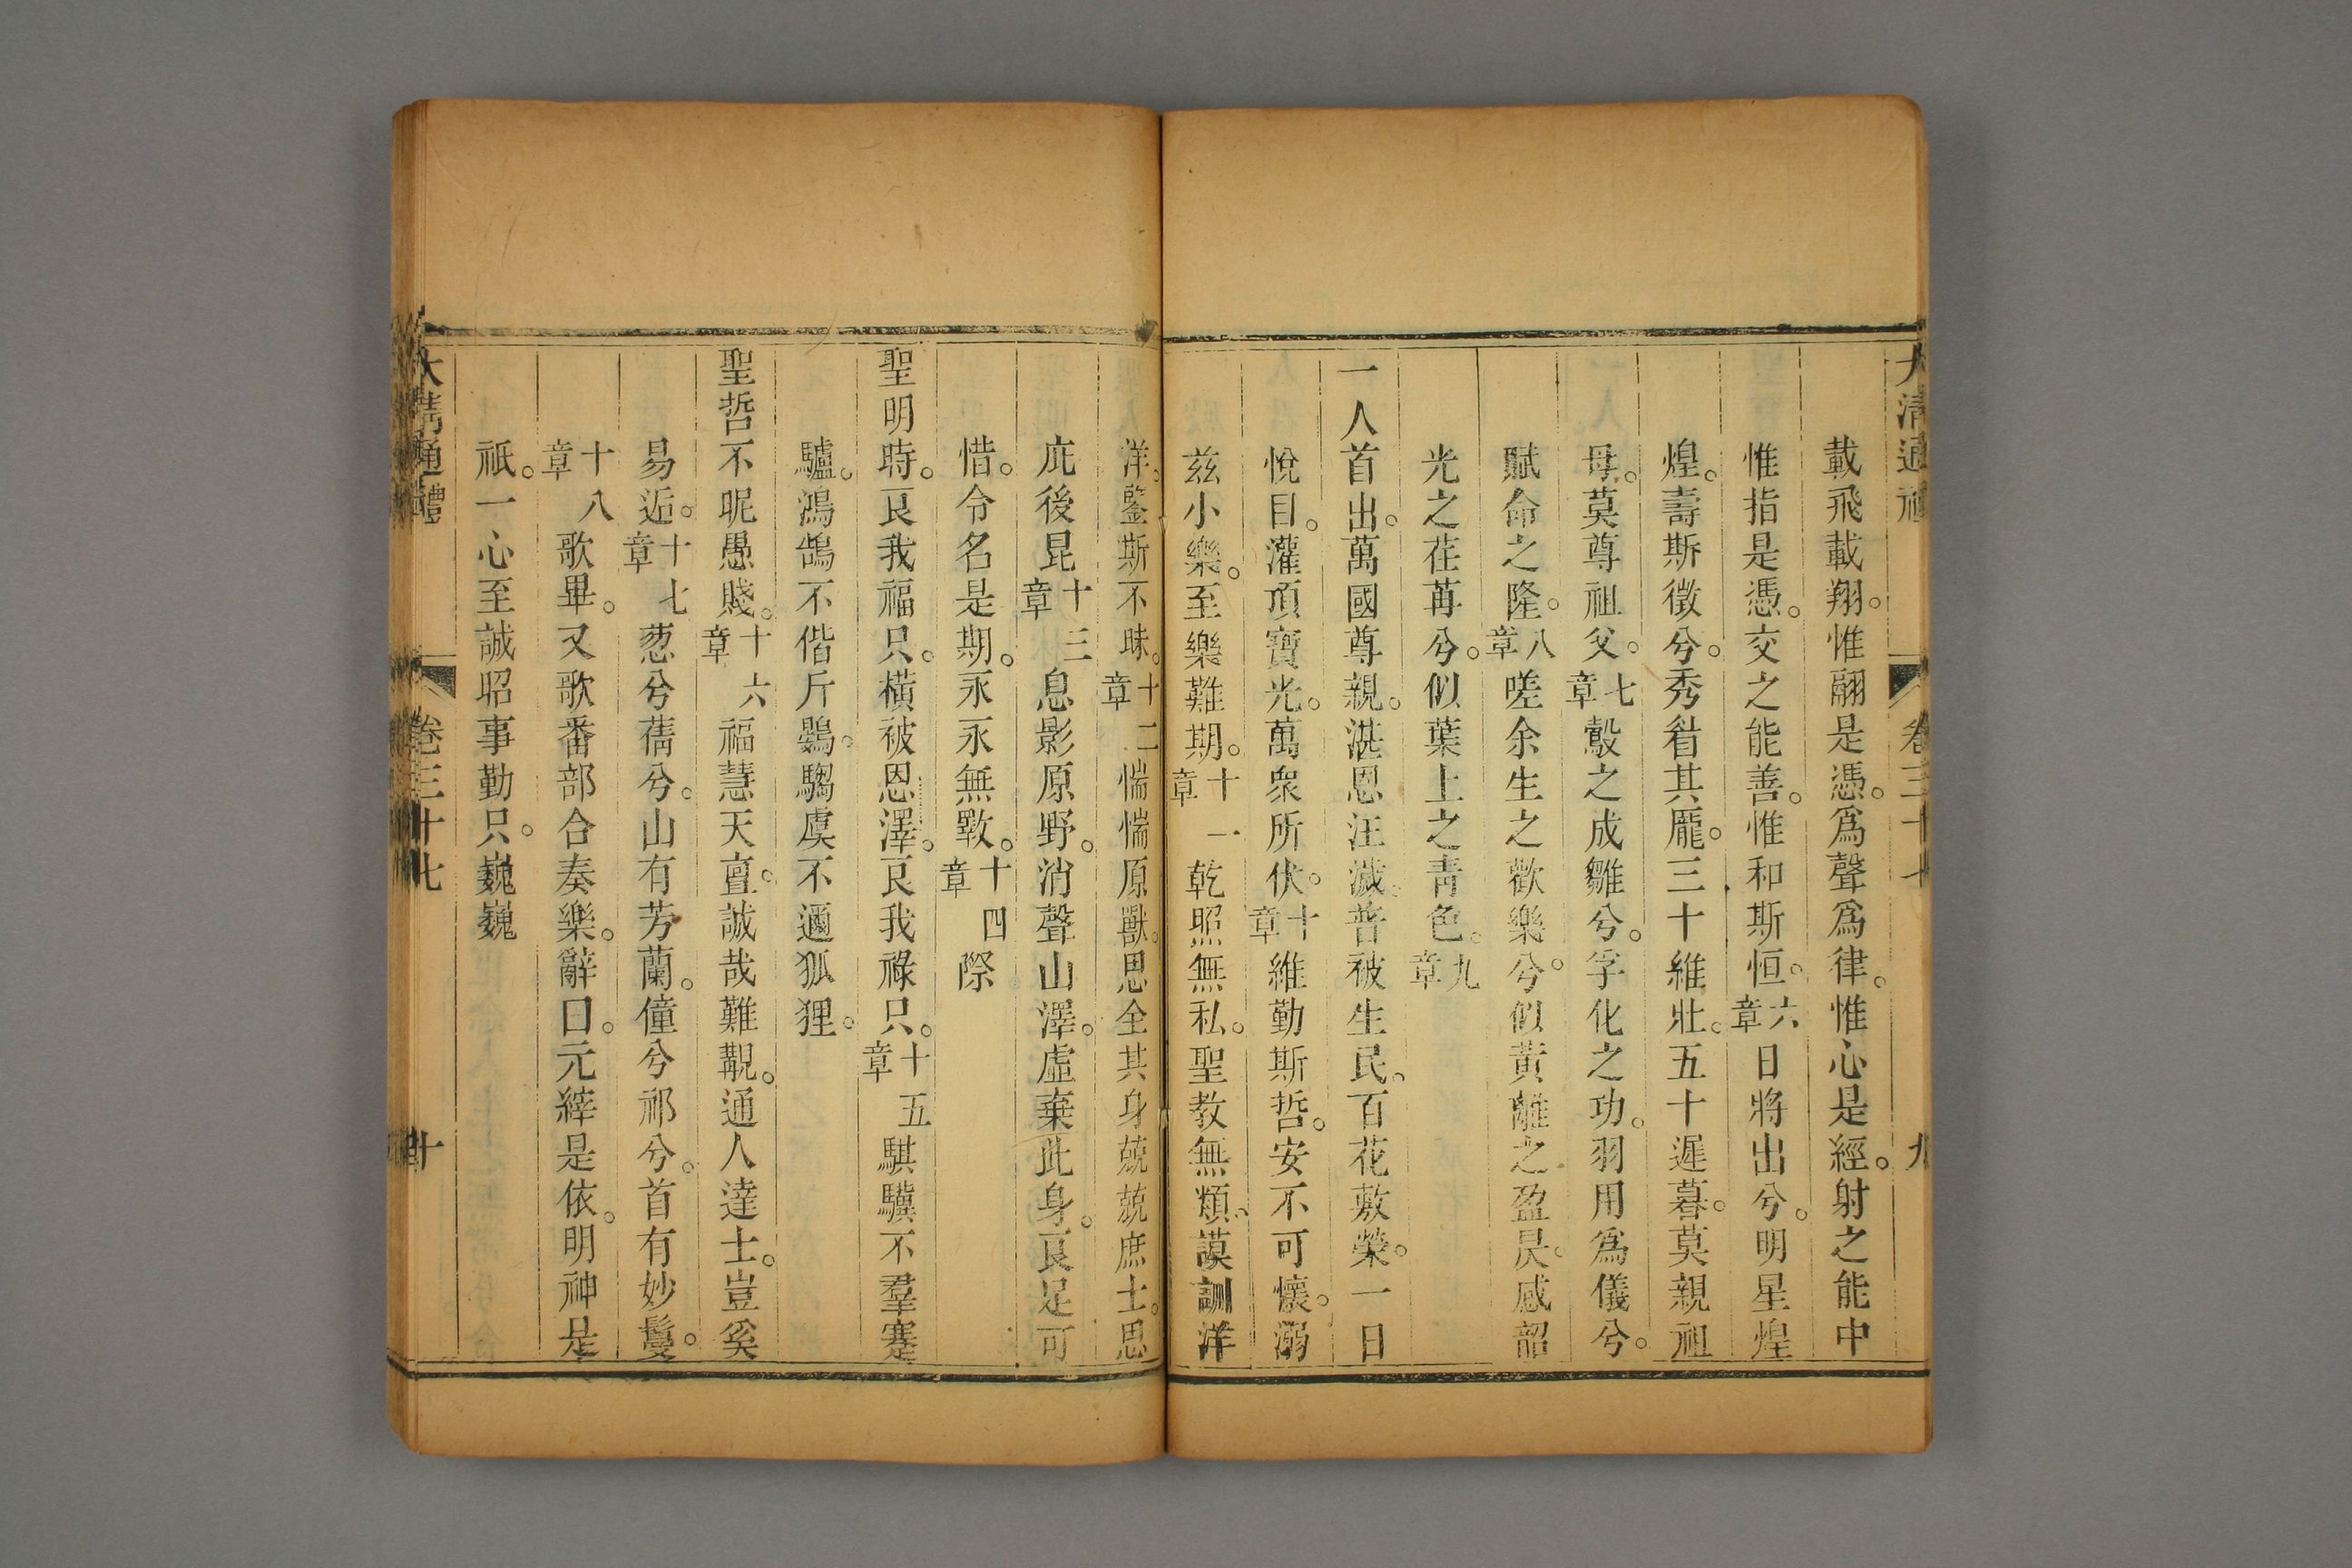 大清通禮 卷三十七 九
載飛載翔。惟翮是憑。爲聲爲律。惟心是經。射之能中
惟指是憑。交之能善。惟和斯恒。六章日將出兮。明星煌
煌。壽斯徵兮。秀眉其厖。三十維壯。五十遲暮。莫親祖
母。莫尊祖父。七章鷇之成雛兮。孚化之功。羽用爲儀兮。
賦命之隆。八章嗟余生之歡樂兮。似黃離之盈昃。感韶
光之荏苒兮。似葉上之青色。九章
一人首出。萬國尊親。湛恩汪濊。普被生民。百花敷榮。一日
悅目。灌頂寶光。萬衆所伏。十章維勤斯哲。安不可懷。溺
兹小樂。至樂難期。十一章乾照無私。聖教無頗。謨訓洋
洋。鑒斯不昧。十二章惴惴原獸。思全其身。兢兢庶士。思
庇後昆。十三章息影原野。消聲山澤。虛棄此身。良足可
惜。令名是期。永永無斁。十四章際
聖明時。良我福只。橫被恩澤。良我祿只。十五章騏驥不羣蹇
驢。鴻鵠不偕斤鷃。騶虞不邇狐狸。
聖哲不昵愚賤。十六章福慧天亶。誠哉難覯。通人達士。豈奚
易逅。十七章葱兮蒨兮。山有芳蘭。僮兮祁兮。首有妙鬘。
十八章歌畢。又歌番部合奏樂。辭曰。元縡是依。明神是
祇。一心至誠昭事勤只。巍巍
大清通禮 卷三十七 十